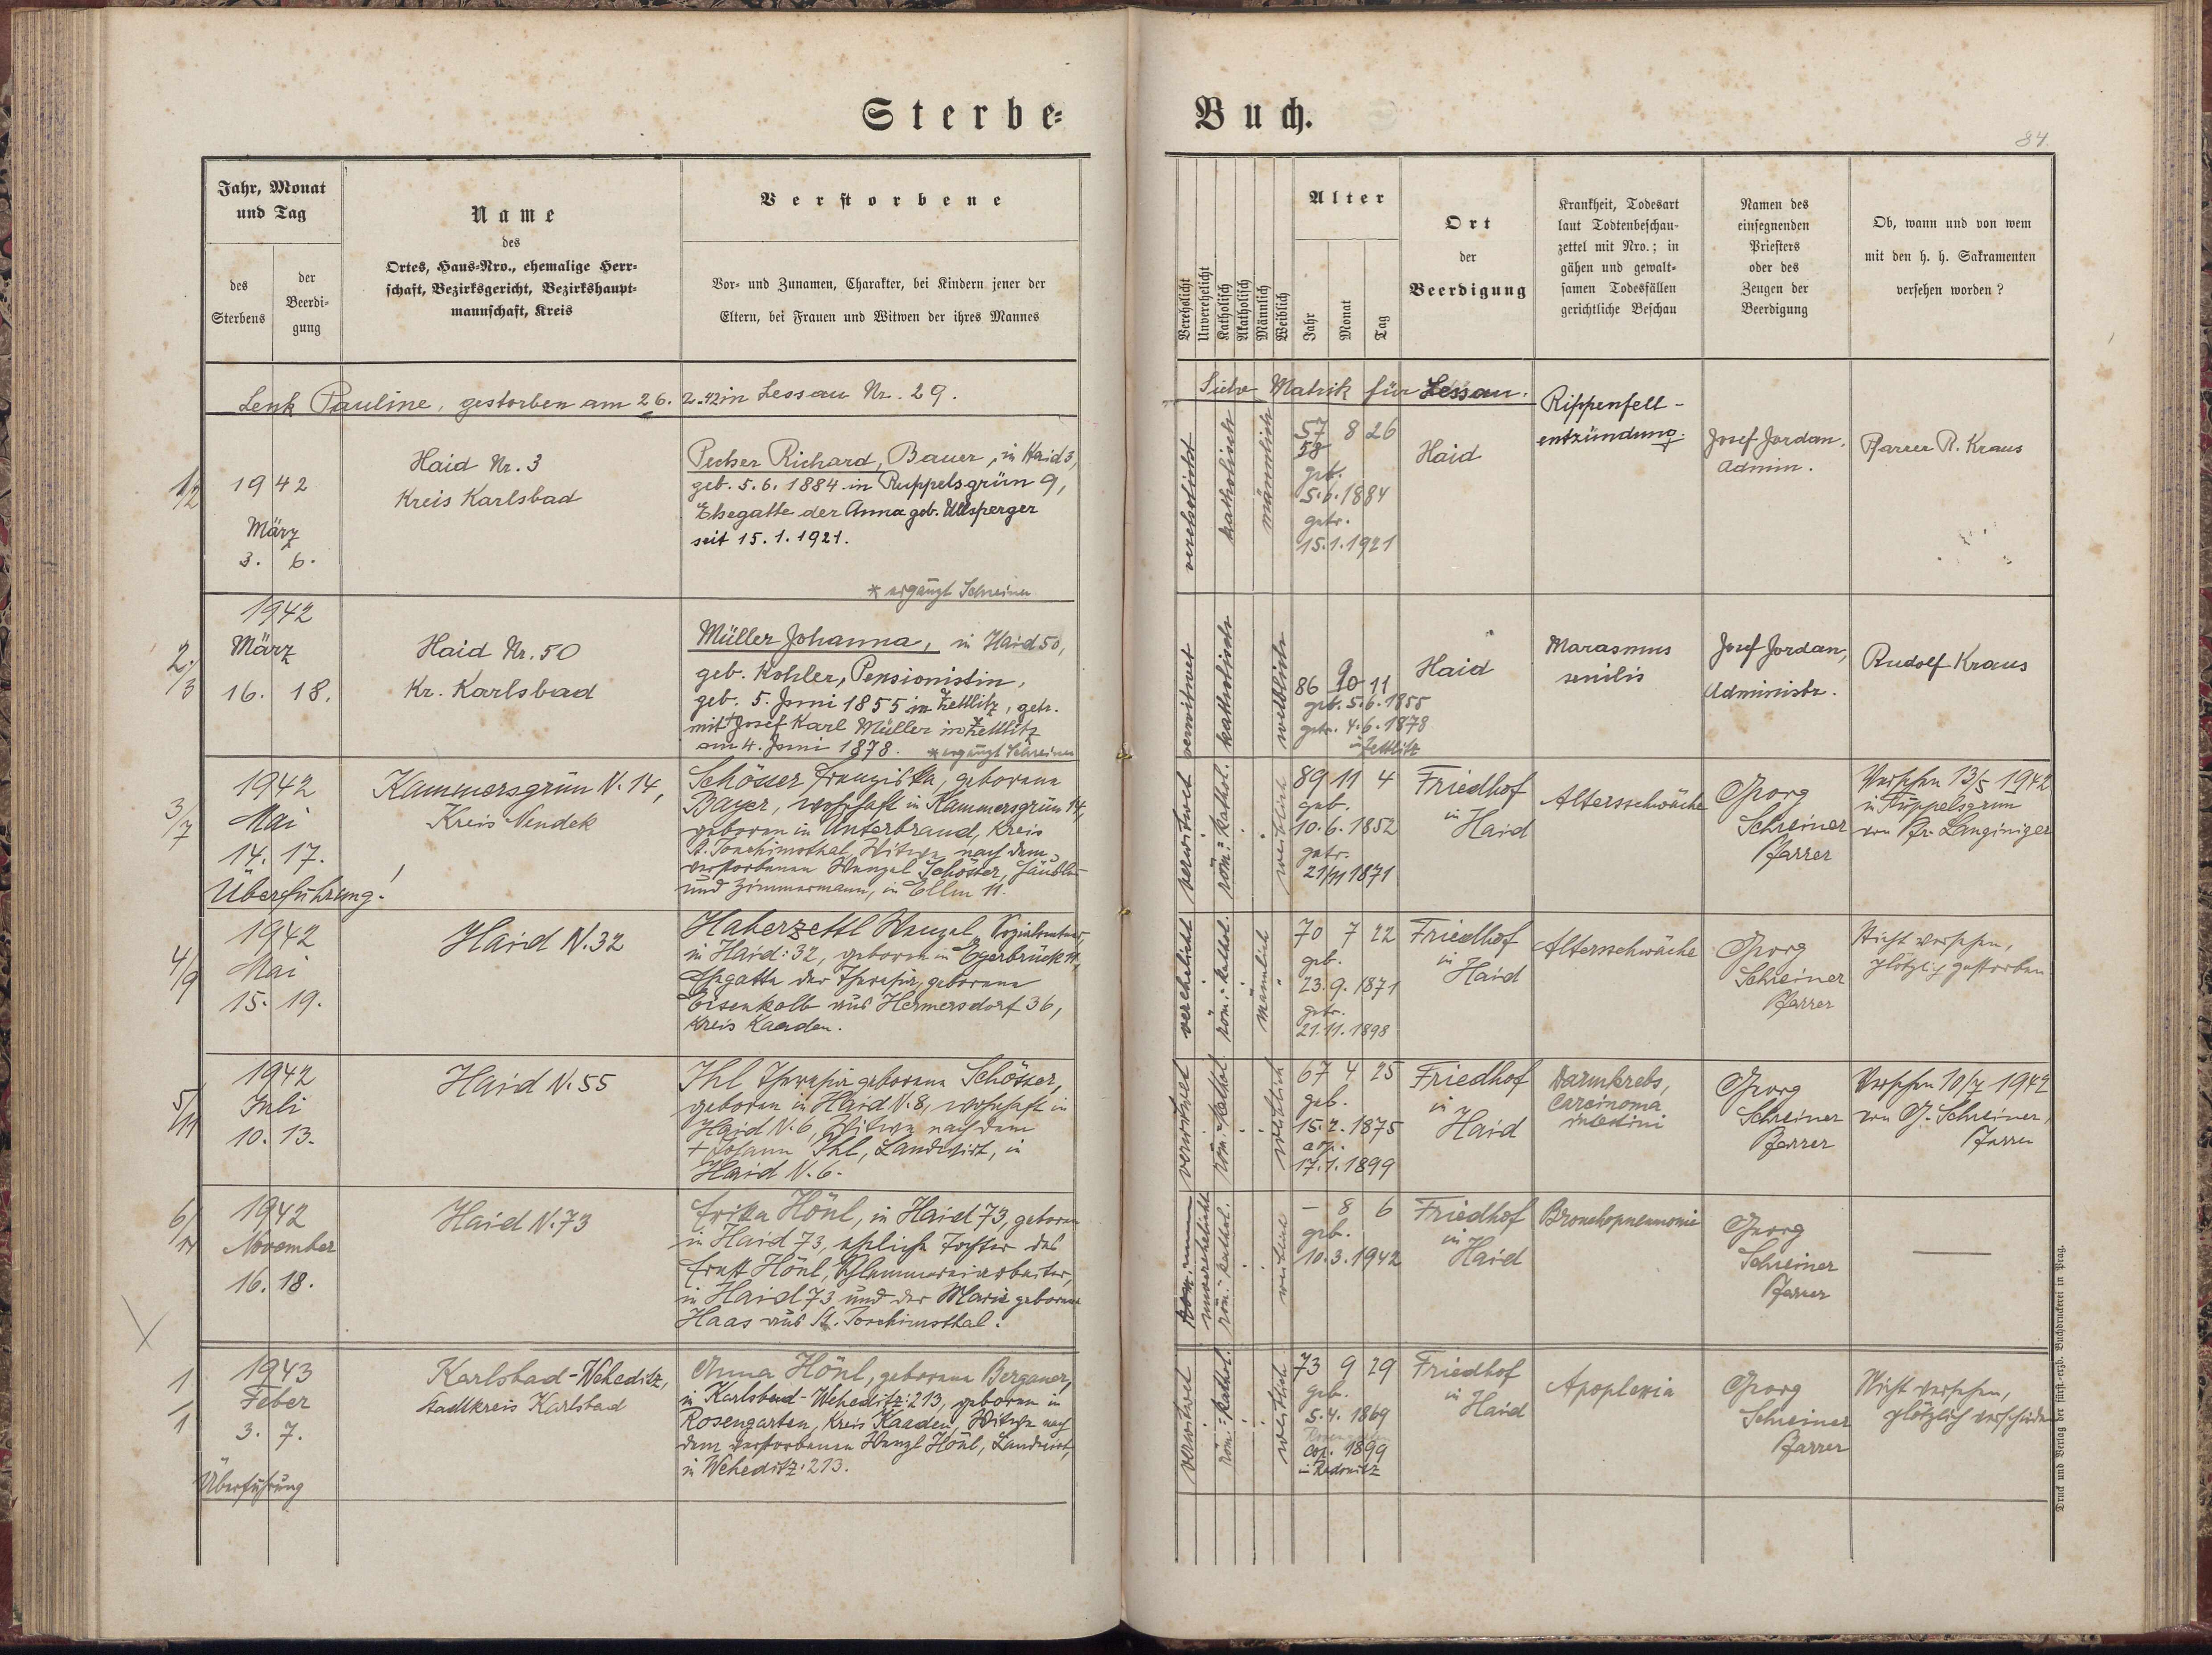 Sterbe-
Buch.
84.
Jahr, Monat
und Tag
des
Sterbens
der
Beerdi-
gung
Name
des
Ortes, Haus-Nro., ehemalige Herr-
schaft, Bezirksgericht, Bezirkshaupt-
mannschaft, Kreis
Verstorbene
Vor- und Zunamen, Charakter, bei Kindern jener der
Eltern, bei Frauen und Witwen der ihres Mannes
Verehelicht
Unverehelicht
Katholisch
Akatholisch
Männlich
Weiblich
Alter
Jahr
Monat
Tag
Ort
der
Beerdigung
Krankheit, Todesart
laut Todtenbeschau-
zettel mit Nro.; in
gähen und gewalt-
samen Todesfällen
gerichtliche Beschau
Namen des
einsegnenden
Priesters
oder des
Zeugen der
Beerdigung
Ob, wann und von wem
mit den h. h. Sakramenten
versehen worden?
Lenk Pauline, gestorben am 26. 2.42 in Lessau Nr. 29.
Siehe Matrik für Lessau.
1/2
1942
März
3. 6.
Haid Nr. 3
Kreis Karlsbad
Pecher Richard, Bauer, in Haid 3,
geb. 5.6.1884 in Ruppelsgrün 9,
Ehegatte der Anna geb. Ullsperger
seit 15.1.1921.
* ergänzt Schreiner
verehelicht
katholisch
männlich
57 8 26
58
geb.
5.6.1884
getr.
15.1.1921
Haid
Rippenfell-
entzündung.
Josef Jordan,
Admin.
Pfarrer R. Kraus
2./3
1942
März
16. 18.
Haid Nr. 50
Kr. Karlsbad
Müller Johanna, in Haid 50,
geb. Kohler, Pensionistin,
geb. 5. Juni 1855 in Zettlitz, getr.
mit + Josef Karl Müller in Zettlitz
am 4. Juni 1878. * ergänzt Schreiner
verwitwet
katholisch
weiblich
9
86 10 11
geb. 5.6.1855
getr. 4.6.1878
in Zettlitz
Haid
Marasmus
senilis
Josef Jordan,
Administr.
Rudolf Kraus
3/7
1942
Mai
14. 17.
Überführung!
Kammersgrün N. 14,
Kreis Neudek
Schösser Franziska, geborene
Bayer, wohnhaft in Kammersgrün 14,
geboren in Unterbrand, Kreis
St. Joachimsthal, Witwe nach dem
verstorbenen Wenzel Schösser, Häusler
und Zimmermann, in Ellm 11.
verwitwet
röm.-kathol.
weiblich
89 11 4
geb.
10.6.1852
getr.
21/11 1871
Friedhof
in
Haid
Altersschwäche
Georg
Schreiner
Pfarrer
Versehen 13/5 1942
in Tüppelsgrün
von Pfr. Langiniger
4/9
1942
Mai
15. 19.
Haid N. 32
Haberzettl Wenzel, Sozialrentner,
in Haid: 32, geboren in Egerbrück 11,
Ehegatte der Theresia, geborene
Eisenkolb aus Hermersdorf 36,
Kreis Kaaden.
verehelicht
röm.-kathol.
männlich
70 7 22
geb.
23.9.1871
getr.
21.11.1898
Friedhof
in
Haid
Altersschwäche
Georg
Schreiner
Pfarrer
Nicht versehen,
plötzlich gestorben
5/11
1942
Juli
10. 13.
Haid N. 55
Ihl Theresia geborene Schösser,
geboren in Haid N. 8, wohnhaft in
Haid N. 6, Witwe nach dem
+ Johann Ihl, Landwirt, in
Haid N. 6.
verwitwet
röm.-kathol.
weiblich
67 4 25
geb.
15.2.1875
cop.
17.1.1899
Friedhof
in
Haid
Darmkrebs,
Carcinoma
Georg
Schreiner
Pfarrer
Versehen 10/7 1942
von G. Schreiner,
Pfarrer
6/
1942
November
16. 18.
Haid N. 73
Erika Hönl, in Haid 73, geboren
in Haid 73, eheliche Tochter des
Ernst Hönl, Schlämmereiarbeiter,
in Haid 73 und der Marie geborene
Haas aus St. Joachimsthal.
unverehelicht
röm.-kathol.
weiblich
– 8 6
geb.
10.3.1942
Friedhof
in
Haid
Bronchopneumonie
Georg
Schreiner
Pfarrer
—
1/1
1943
Feber
3. 7.
Überführung
Karlsbad-Weheditz,
Stadtkreis Karlsbad
Anna Hönl, geborene Bergauer,
in Karlsbad-Weheditz: 213, geboren in
Rosengarten, Kreis Kaaden, Witwe nach
dem verstorbenen Wenzl Hönl, Landwirt,
in Weheditz: 213.
verwitwet
röm.-kathol.
weiblich
73 9 29
geb.
5.4.1869
Rosengarten
cop. 1899
in Radonitz
Friedhof
in
Haid
Apoplexia
Georg
Schreiner
Pfarrer
Nicht versehen,
plötzlich verschieden
Druck und Verlag der fürst-erzb. Buchdruckerei in Prag.